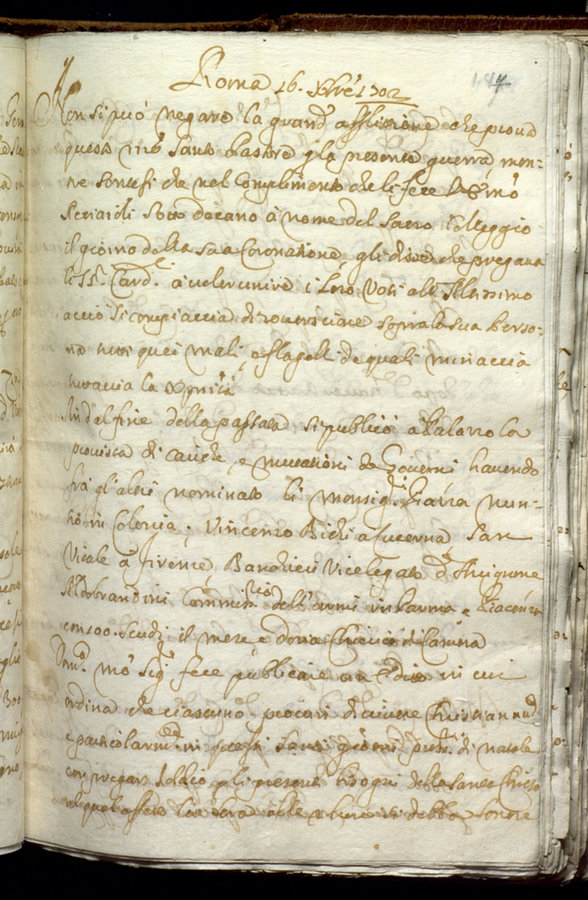 Roma 16. Xbre 1702
Non si può negare la grand' afflizione che prova
questo nro Santo Pastore p la presente guerra men-
tre sentesi che nel Complimento che li fece l'Em͂o
Acciaioli Sotto decano à nome del Sacro Colleggio
il giorno della sua Coronatione gli disse che pregava
li SS. Card. à voler unire i loro Voti all' Altissimo
acciò si compiaccia di roversciare sopra la sua Perso-
na tutti quei mali e flagelli de quali minaccia
tuttavia la Xpnità
In del fine della passata si publicò a Palazzo la
provista di cariche, e mutationi de Governi havendo
frà gl'altri nominato li monsig.ri Piazza nun-
tio in Colonia, Vincenzo Bichi a Lucerna San
Vitale a Firenze Banchieri Vicelegato d'Avignone
Aldobrandini Commiss.rio dell'armi in Parma e Piacenza
con 300 scudi il mese e doria Chierico di Camera
Dom.ca mò Sig.re fece publicare un Editto in cui
ordina che ciascuno procuri di vivere Christianam.te
e particolarm.te in questi santi giorni festivi di natale
con pregare Iddio p li presenti bisogni della Santa Chiesa
al qual effetto